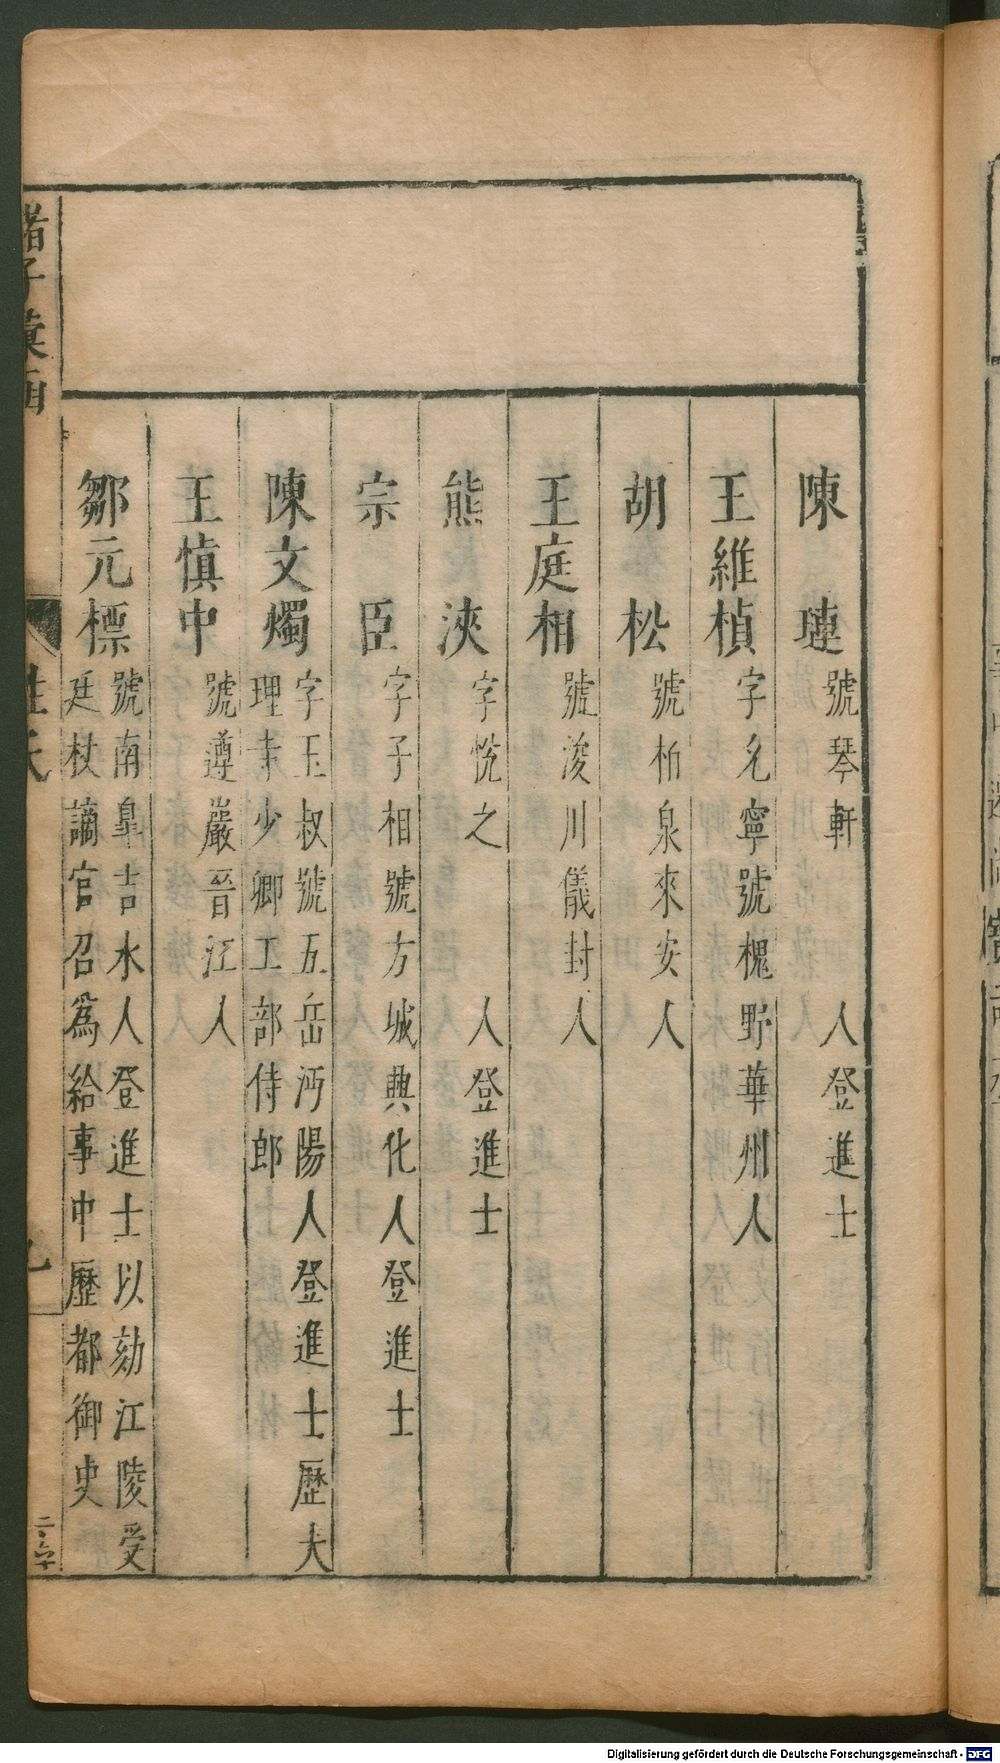 陳 璉 號琴軒 人登進士
王維楨 字允寧號槐野華州人
胡 松 號柏泉來安人
王庭相 號浚川儀封人
熊 浹 字悅之 人登進士
宗 臣 字子相號方城興化人登進士
陳文燭 字玉叔號五岳沔陽人登進士歷大
理寺少卿工部侍郎
王慎中 號遵巖晉江人
鄒元標 號南臯吉水人登進士以劾江陵受
廷杖謫官召為給事中歷都御史
諸子彙函
姓氏
九
Digitalisierung gefördert durch die Deutsche Forschungsgemeinschaft - DFG